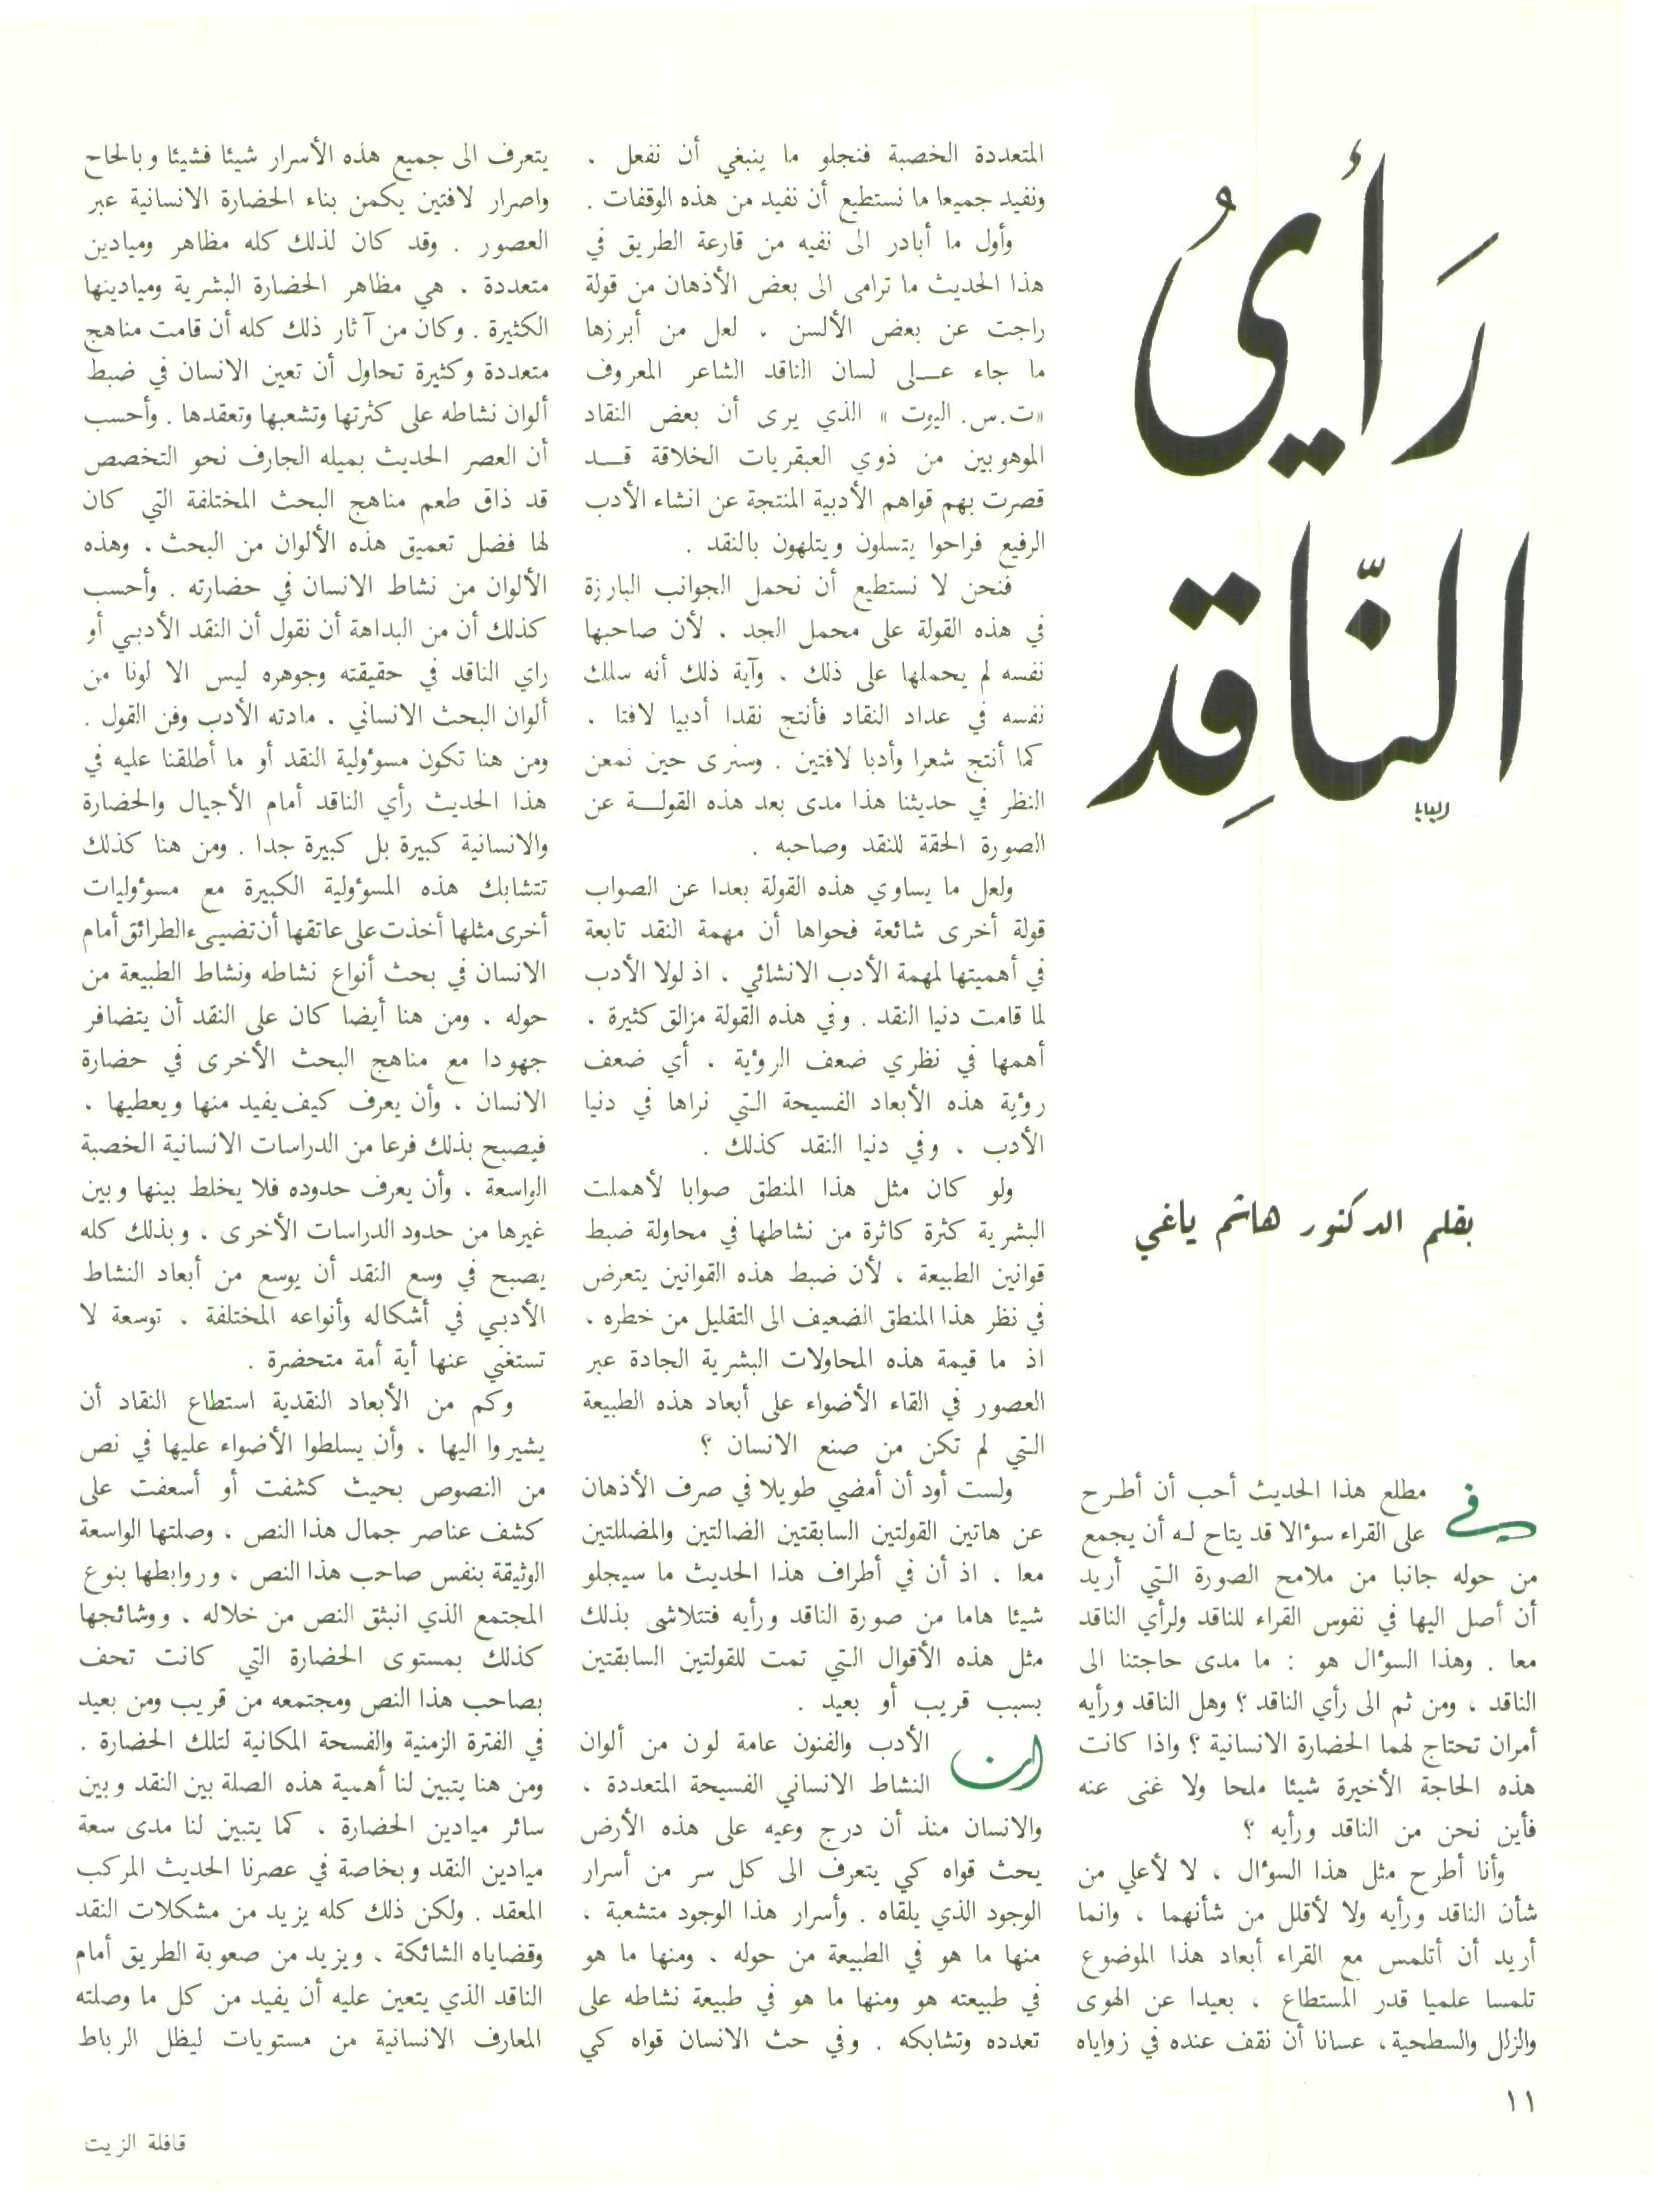 رَأيُ
النّاقِد
البابا
بقلم الدكتور هاشم ياغي
في مطلع هذا الحديث أحب أن أطرح
على القراء سؤالا قد يتاح له أن يجمع
من حوله جانبا من ملامح الصورة التي أريد
أن أصل اليها في نفوس القراء للناقد ولرأي الناقد
معا . وهذا السؤال هو : ما مدى حاجتنا الى
الناقد ، ومن ثم الى رأي الناقد ؟ وهل الناقد ورأيه
أمران تحتاج لهما الحضارة الانسانية ؟ واذا كانت
هذه الحاجة الأخيرة شيئا ملحا ولا غنى عنه
فأين نحن من الناقد ورأيه ؟
وأنا أطرح مثل هذا السؤال ، لا لأعلي من
شأن الناقد ورأيه ولا لأقلل من شأنهما ، وانما
أريد أن أتلمس مع القراء أبعاد هذا الموضوع
تلمسا علميا قدر المستطاع ، بعيدا عن الهوى
والزلل والسطحية، عسانا أن نقف عنده في زواياه
المتعددة الخصبة فنجلو ما ينبغي أن نفعل .
ونفيد جميعا ما نستطيع أن نفيد من هذه الوقفات .
وأول ما أبادر الى نفيه من قارعة الطريق في
هذا الحديث ما ترامى الى بعض الأذهان من قولة
راجت عن بعض الألسن ، لعل من أبرزها
ما جاء عـلى لسان الناقد الشاعر المعروف
«ت.س. اليوت » الذي يرى أن بعض النقاد
الموهوبين من ذوي العبقريات الخلاقة قــد
قصرت بهم قواهم الأدبية المنتجة عن انشاء الأدب
الرفيع فراحوا يتسلون ويتلهون بالنقد .
فنحن لا نستطيع أن نحمل الجوانب البارزة
في هذه القولة على محمل الجد ، لأن صاحبها
نفسه لم يحملها على ذلك ، وآية ذلك أنه سلك
نفسه في عداد النقاد فأنتج نقدا أدبيا لافتا .
كما أنتج شعرا وأدبا لافتين . وسنرى حين نمعن
النظر في حديثنا هذا مدى بعد هذه القولـة عن
الصورة الحقة للنقد وصاحبه .
ولعل ما يساوي هذه القولة بعدا عن الصواب
قولة أخرى شائعة فحواها أن مهمة النقد تابعة
في أهميتها لمهمة الأدب الانشائي ، اذ لولا الأدب
لما قامت دنيا النقد . وفي هذه القولة مزالق كثيرة .
أهمها في نظري ضعف الرؤية ، أي ضعف
رؤية هذه الأبعاد الفسيحة التي نراها في دنيا
الأدب ، وفي دنيا النقد كذلك .
ولو كان مثل هذا المنطق صوابا لأهملت
البشرية كثرة كاثرة من نشاطها في محاولة ضبط
قوانين الطبيعة ، لأن ضبط هذه القوانين يتعرض
في نظر هذا المنطق الضعيف الى التقليل من خطره ،
اذ ما قيمة هذه المحاولات البشرية الجادة عبر
العصور في القاء الأضواء على أبعاد هذه الطبيعة
التي لم تكن من صنع الانسان ؟
ولست أود أن أمضي طويلا في صرف الأذهان
عن هاتين القولتين السابقتين الضالتين والمضللتين
معا ، اذ أن في أطراف هذا الحديث ما سيجلو
شيئا هاما من صورة الناقد ورأيه فتتلاشى بذلك
مثل هذه الأقوال التي تمت للقولتين السابقتين
بسبب قريب أو بعيد .
ان الأدب والفنون عامة لون من ألوان
النشاط الانساني الفسيحة المتعددة ،
والانسان منذ أن درج وعيه على هذه الأرض
يحث قواه كي يتعرف الى كل سر من أسرار
الوجود الذي يلقاه . وأسرار هذا الوجود متشعبة ،
منها ما هو في الطبيعة من حوله ، ومنها ما هو
في طبيعته هو ومنها ما هو في طبيعة نشاطه على
تعدده وتشابكه . وفي حث الانسان قواه كي
يتعرف الى جميع هذه الأسرار شيئا فشيئا وبالحاح
واصرار لافتين يكمن بناء الحضارة الانسانية عبر
العصور . وقد كان لذلك كله مظاهر وميادين
متعددة ، هي مظاهر الحضارة البشرية وميادينها
الكثيرة . وكان من آثار ذلك كله أن قامت مناهج
متعددة وكثيرة تحاول أن تعين الانسان في ضبط
ألوان نشاطه على كثرتها وتشعبها وتعقدها . وأحسب
أن العصر الحديث بميله الجارف نحو التخصص
قد ذاق طعم مناهج البحث المختلفة التي كان
لها فضل تعميق هذه الألوان من البحث . وهذه
الألوان من نشاط الانسان في حضارته . وأحسب
كذلك أن من البداهة أن نقول أن النقد الأدبي أو
راي الناقد في حقيقته وجوهره ليس الا لونا من
ألوان البحث الانساني ، مادته الأدب وفن القول .
ومن هنا تكون مسؤولية النقد أو ما أطلقنا عليه في
هذا الحديث رأي الناقد أمام الأجيال والحضارة
والانسانية كبيرة بل كبيرة جدا . ومن هنا كذلك
تتشابك هذه المسؤولية الكبيرة مع مسؤوليات
أخرى مثلها أخذت على عاتقها أن تضيىء الطرائق أمام
الانسان في بحث أنواع نشاطه ونشاط الطبيعة من
حوله ، ومن هنا أيضا كان على النقد أن يتضافر
جهودا مع مناهج البحث الأخرى في حضارة
الانسان ، وأن يعرف كيف يفيد منها ويعطيها ،
فيصبح بذلك فرعا من الدراسات الانسانية الخصبة
الواسعة ، وأن يعرف حدوده فلا يخلط بينها وبين
غيرها من حدود الدراسات الأخرى ، وبذلك كله
يصبح في وسع النقد أن يوسع من أبعاد النشاط
الأدبي في أشكاله وأنواعه المختلفة ، توسعة لا
تستغني عنها أية أمة متحضرة .
وكم من الأبعاد النقدية استطاع النقاد أن
يشيروا اليها ، وأن يسلطوا الأضواء عليها في نص
من النصوص بحيث كشفت أو أسعفت على
كشف عناصر جمال هذا النص ، وصلتها الواسعة
الوثيقة بنفس صاحب هذا النص ، وروابطها بنوع
المجتمع الذي انبثق النص من خلاله ، ووشائجها
كذلك بمستوى الحضارة التي كانت تحف
بصاحب هذا النص ومجتمعه من قريب ومن بعيد
في الفترة الزمنية والفسحة المكانية لتلك الحضارة .
ومن هنا يتبين لنا أهمية هذه الصلة بين النقد وبين
سائر ميادين الحضارة ، كما يتبين لنا مدى سعة
ميادين النقد وبخاصة في عصرنا الحديث المركب
المعقد . ولكن ذلك كله يزيد من مشكلات النقد
وقضاياه الشائكة ، ويزيد من صعوبة الطريق أمام
الناقد الذي يتعين عليه أن يفيد من كل ما وصلته
المعارف الانسانية من مستويات ليظل الرباط
١١
قافلة الزيت